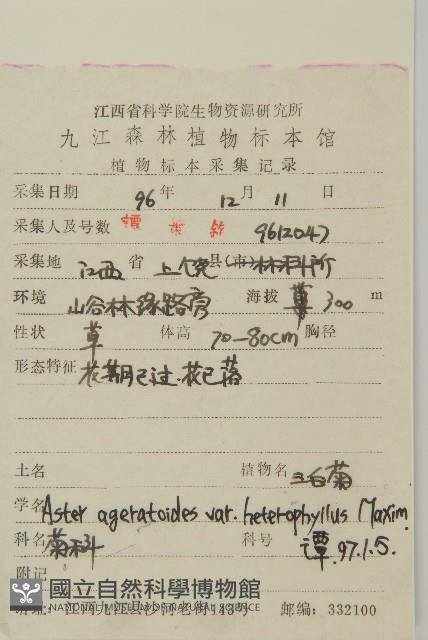 江西省科学院生物资源研究所
九江森林植物标本馆
植物标本采集记录
采集日期 96 年 12 月 11 日
采集人及号数 谭策铭 9612047
采集地 江西 省 上饶 县(市) 林科所
环境 山谷林缘路旁 海拔 300 m
性状 草 体高 70-80cm 胸径
形态特征 花期已过.花已落
土名 植物名 三白菊
学名 Aster ageratoides var. heterophyllus Maxim.
科名 菊科 科号 谭.97.1.5.
附记
國立自然科學博物館
NATIONAL MUSEUM OF NATURAL SCIENCE
江西九江县沙河老街113号 邮编: 332100